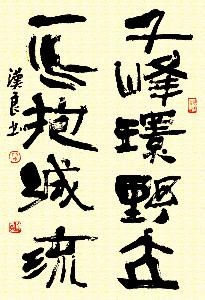 千峰環野立
一水抱城流
漢良书